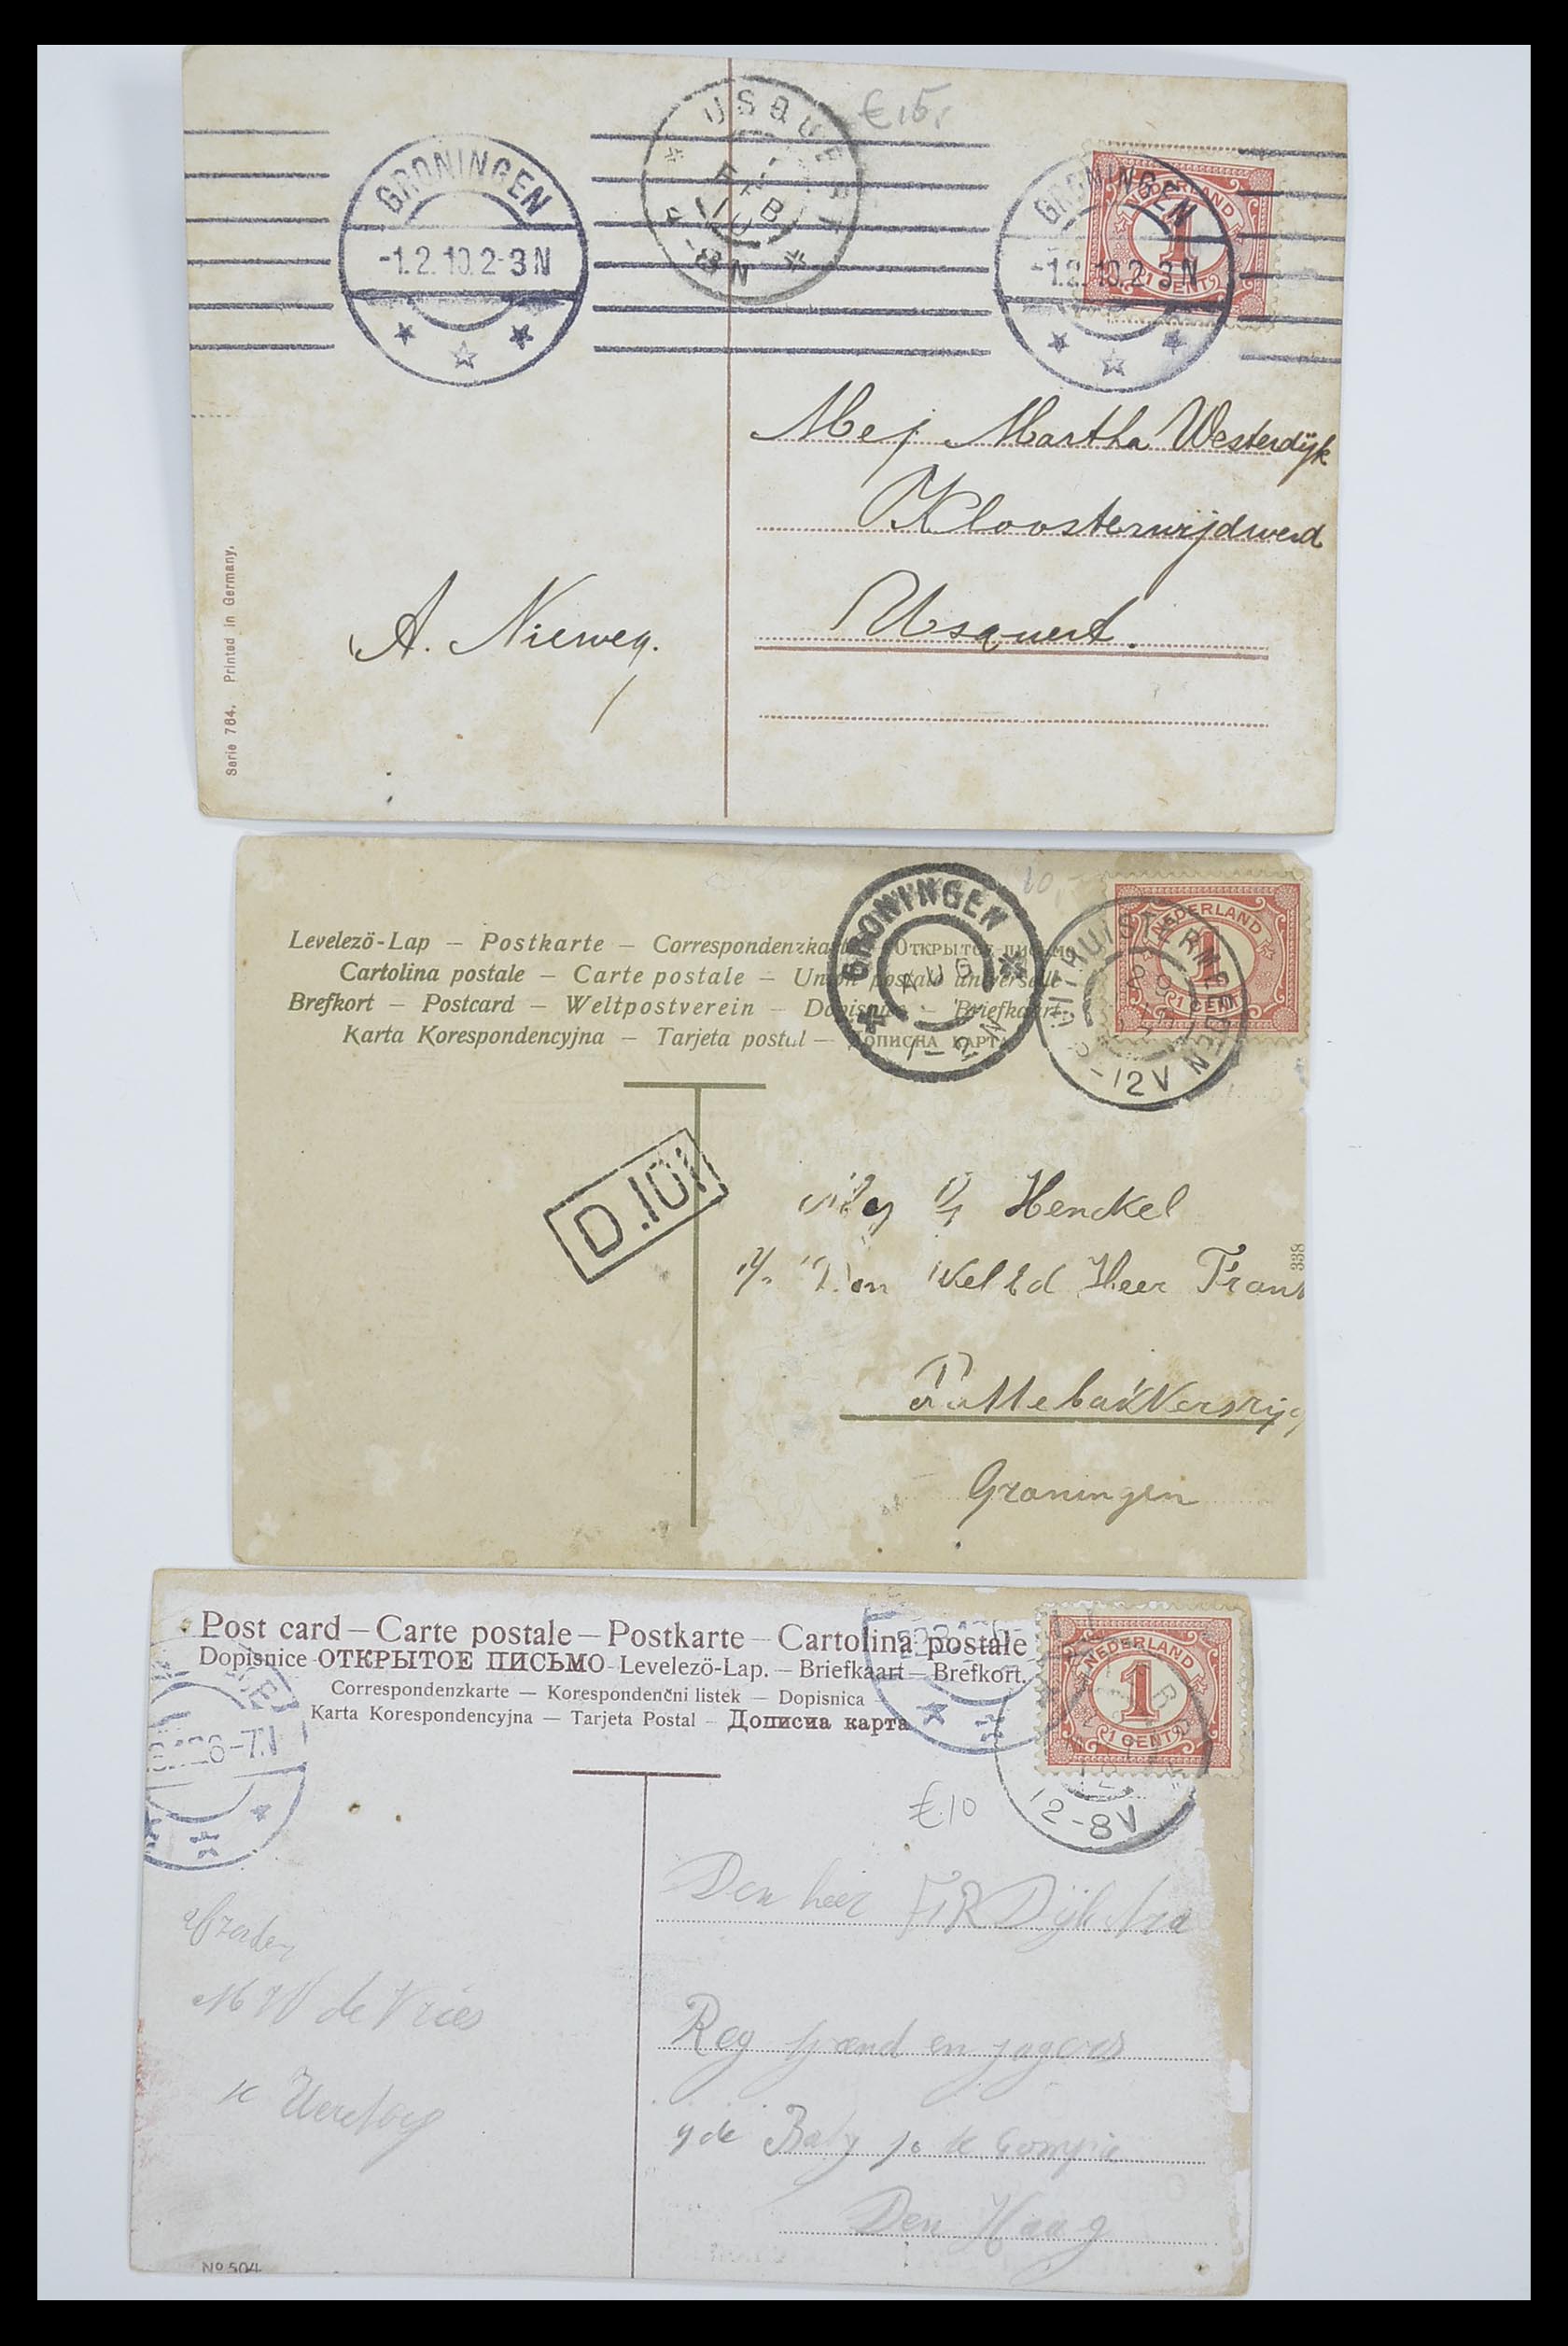 € 15,
USQUERT
FEB
10
-8N
GRONINGEN
-1.2.10.2-3N
GRONINGEN
-1.2.10.2-3N
NEDERLAND
1
1 CENT
Mej Martha Westerdijk
Kloosterwijdwerd
Usquert.
A. Nieweg.
Serie 764. Printed in Germany.
10
GRONINGEN
AUG
1-2N
NEDERLAND
1
1 CENT
UITHUISTERMEEDEN
-12V
Levelező-Lap – Postkarte – Correspondenzkarte – Открытое письмо
Cartolina postale – Carte postale – Union postale universelle
Brefkort – Postcard – Weltpostverein – Dopisnice – Briefkaart
Karta Korespondencyjna – Tarjeta postal – Дописна карта
D.10
Henckel
Den Wel Ed Heer Frans
Groningen
338
Post card – Carte postale – Postkarte – Cartolina postale
Dopisnice – ОТКРЫТОЕ ПИСЬМО – Levelező-Lap. – Briefkaart – Brefkort.
Correspondenzkarte – Korespondenční listek – Dopisnica –
Karta Korespondencyjna – Tarjeta Postal – Дописна карта
NEDERLAND
1
1 CENT
12-8V
6-7N
€ 10
Den heer F R Dijkstra
Reg en jagers
4de de Compie
Den Haag
M W de Vries
No 504